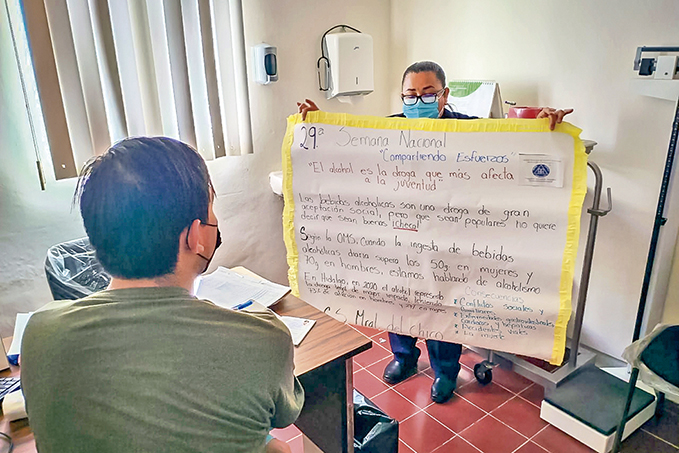 29ª Semana Nacional
"Compartiendo Esfuerzos"
"El alcohol es la droga que más afecta
a la juventud"
Las bebidas alcohólicas son una droga de gran
aceptación social, pero que sean populares no quiere
decir que sean buenas ¡checa!
Según la OMS: Cuando la ingesta de bebidas
alcohólicas diaria supera los 50g en mujeres y
70g en hombres, estamos hablando de alcoholismo
En Hidalgo, en 2020 el alcohol represento
la droga legal de mayor impacto
* Conflictos sociales y
familiares
* Enfermedades gastrointestinales
* Accidentes viales
* La muerte
C.S. Mral. del Chico